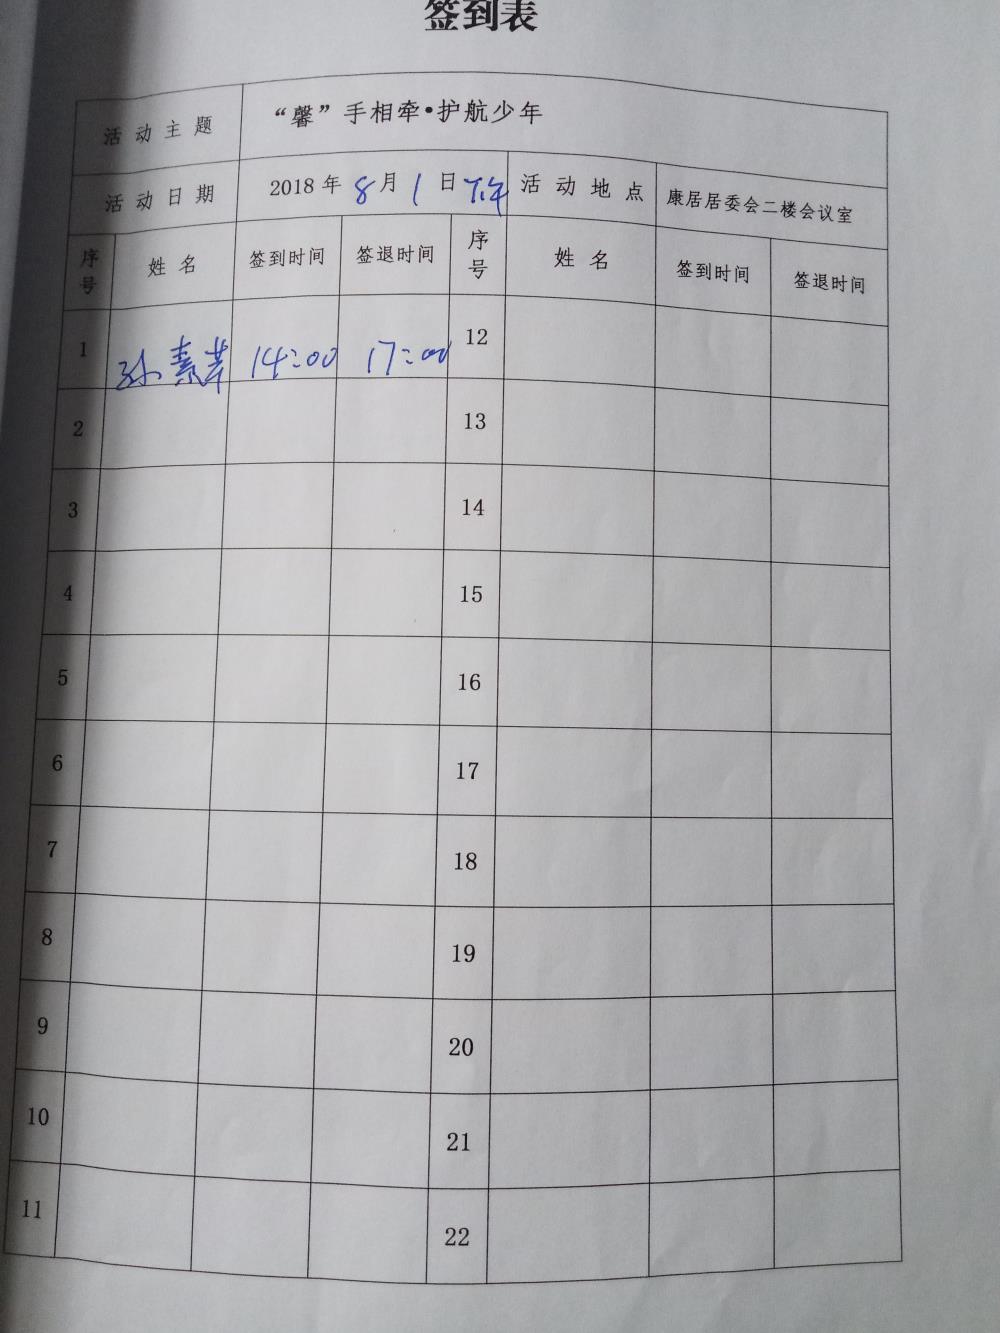 签到表
活动主题 “馨”手相牵•护航少年
活动日期 2018年8月1日下午 活动地点 康居居委会二楼会议室
序号 姓名 签到时间 签退时间 序号 姓名 签到时间 签退时间
1 孙素苹 14:00 17:00 12
2 13
3 14
4 15
5 16
6 17
7 18
8 19
9 20
10 21
11 22